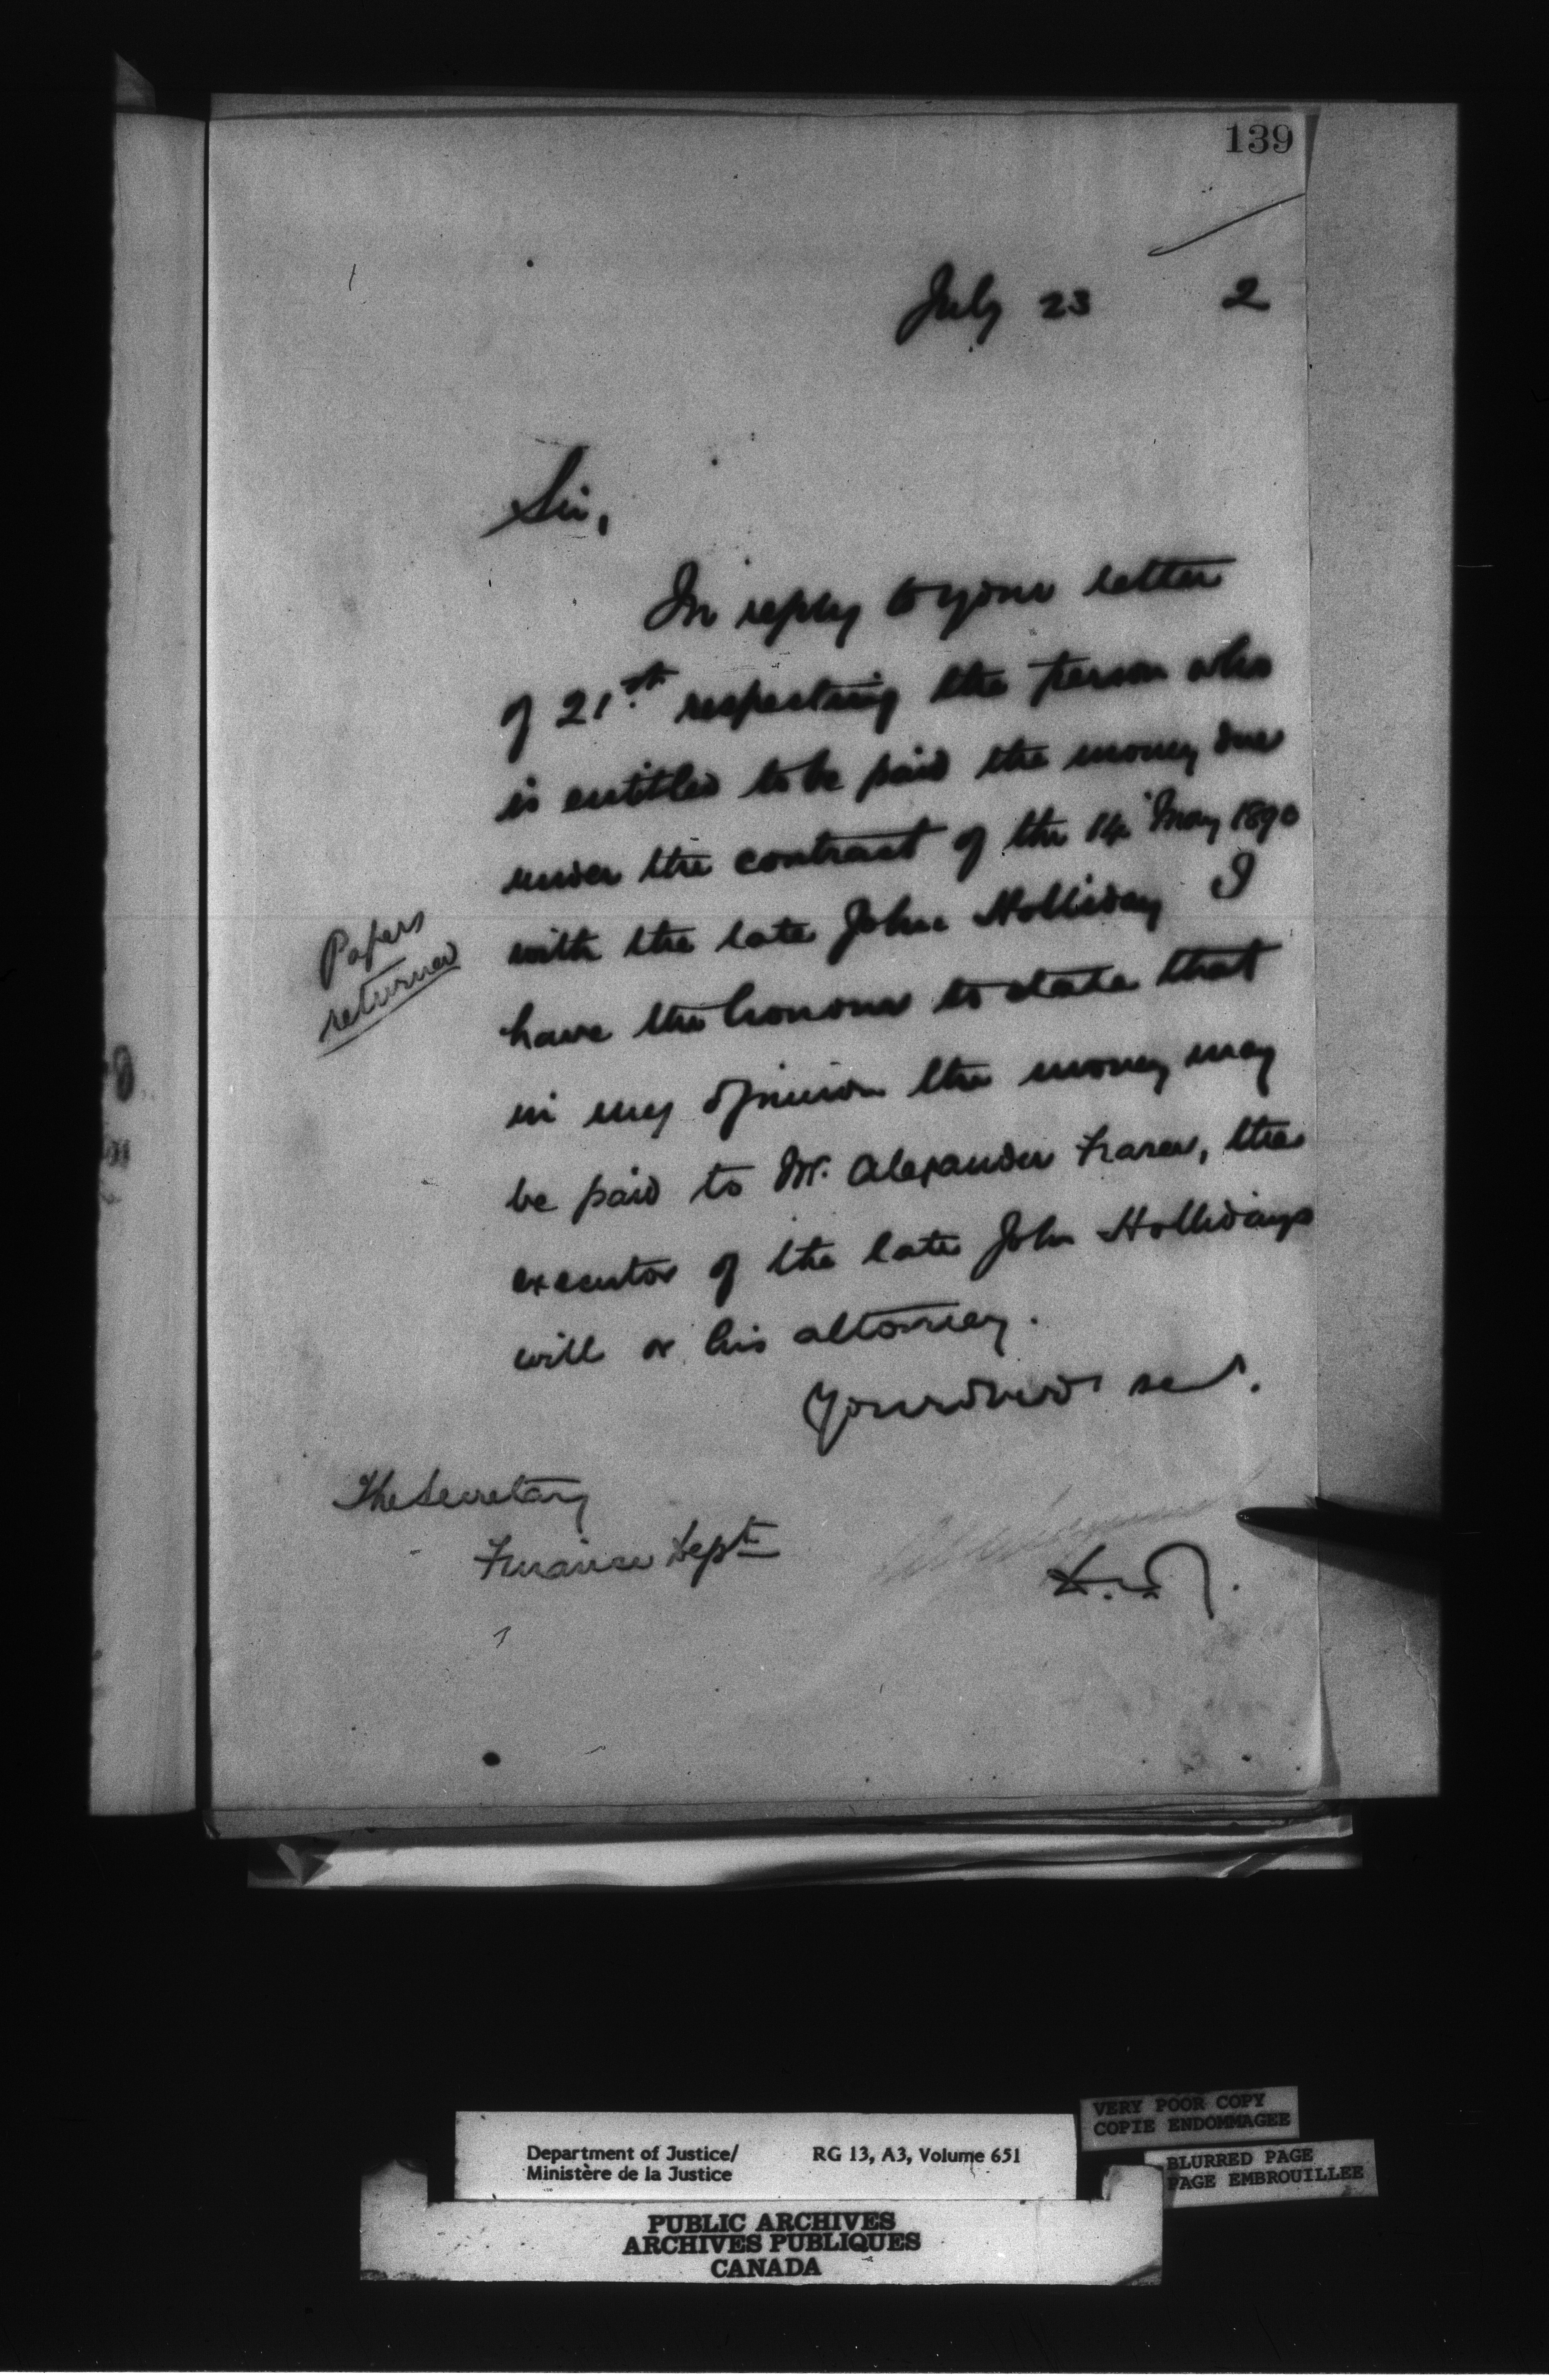 139
July 23 2
Sir,
In reply to your letter
of 21st respecting the person who
is entitled to be paid the money due
under the contract of the 14 May 1890
with the late John Holliday I
Papers
returned
have the honour to state that
in my opinion the money may
be paid to Mr. Alexander Fraser, the
executor of the late John Hollidays
will or his attorney.
Your obedt servt.
The Secretary
Finance Dept
Department of Justice/ RG 13, A3, Volume 651
Ministère de la Justice
VERY POOR COPY
COPIE ENDOMMAGEE
BLURRED PAGE
PAGE EMBROUILLEE
PUBLIC ARCHIVES
ARCHIVES PUBLIQUES
CANADA